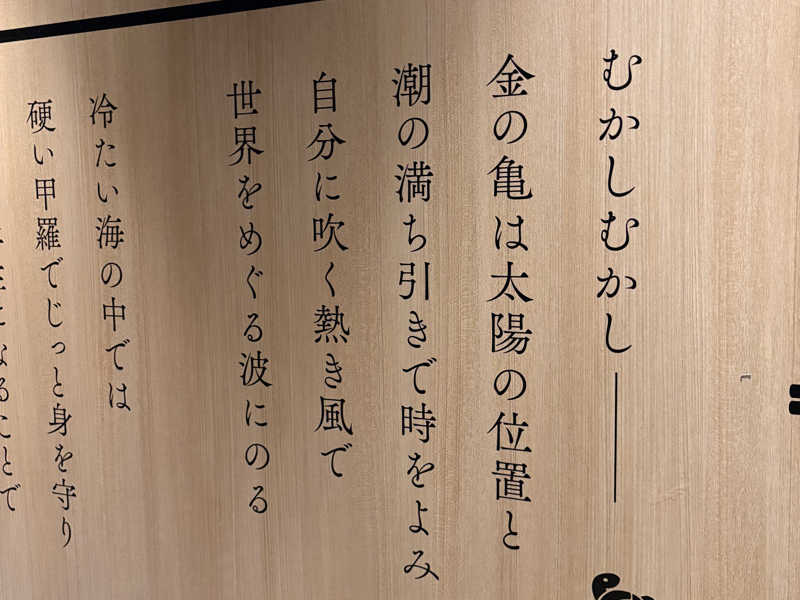 むかしむかし――
金の亀は太陽の位置と
潮の満ち引きで時をよみ
自分に吹く熱き風で
世界をめぐる波にのる
冷たい海の中では
硬い甲羅でじっと身を守り
なることで